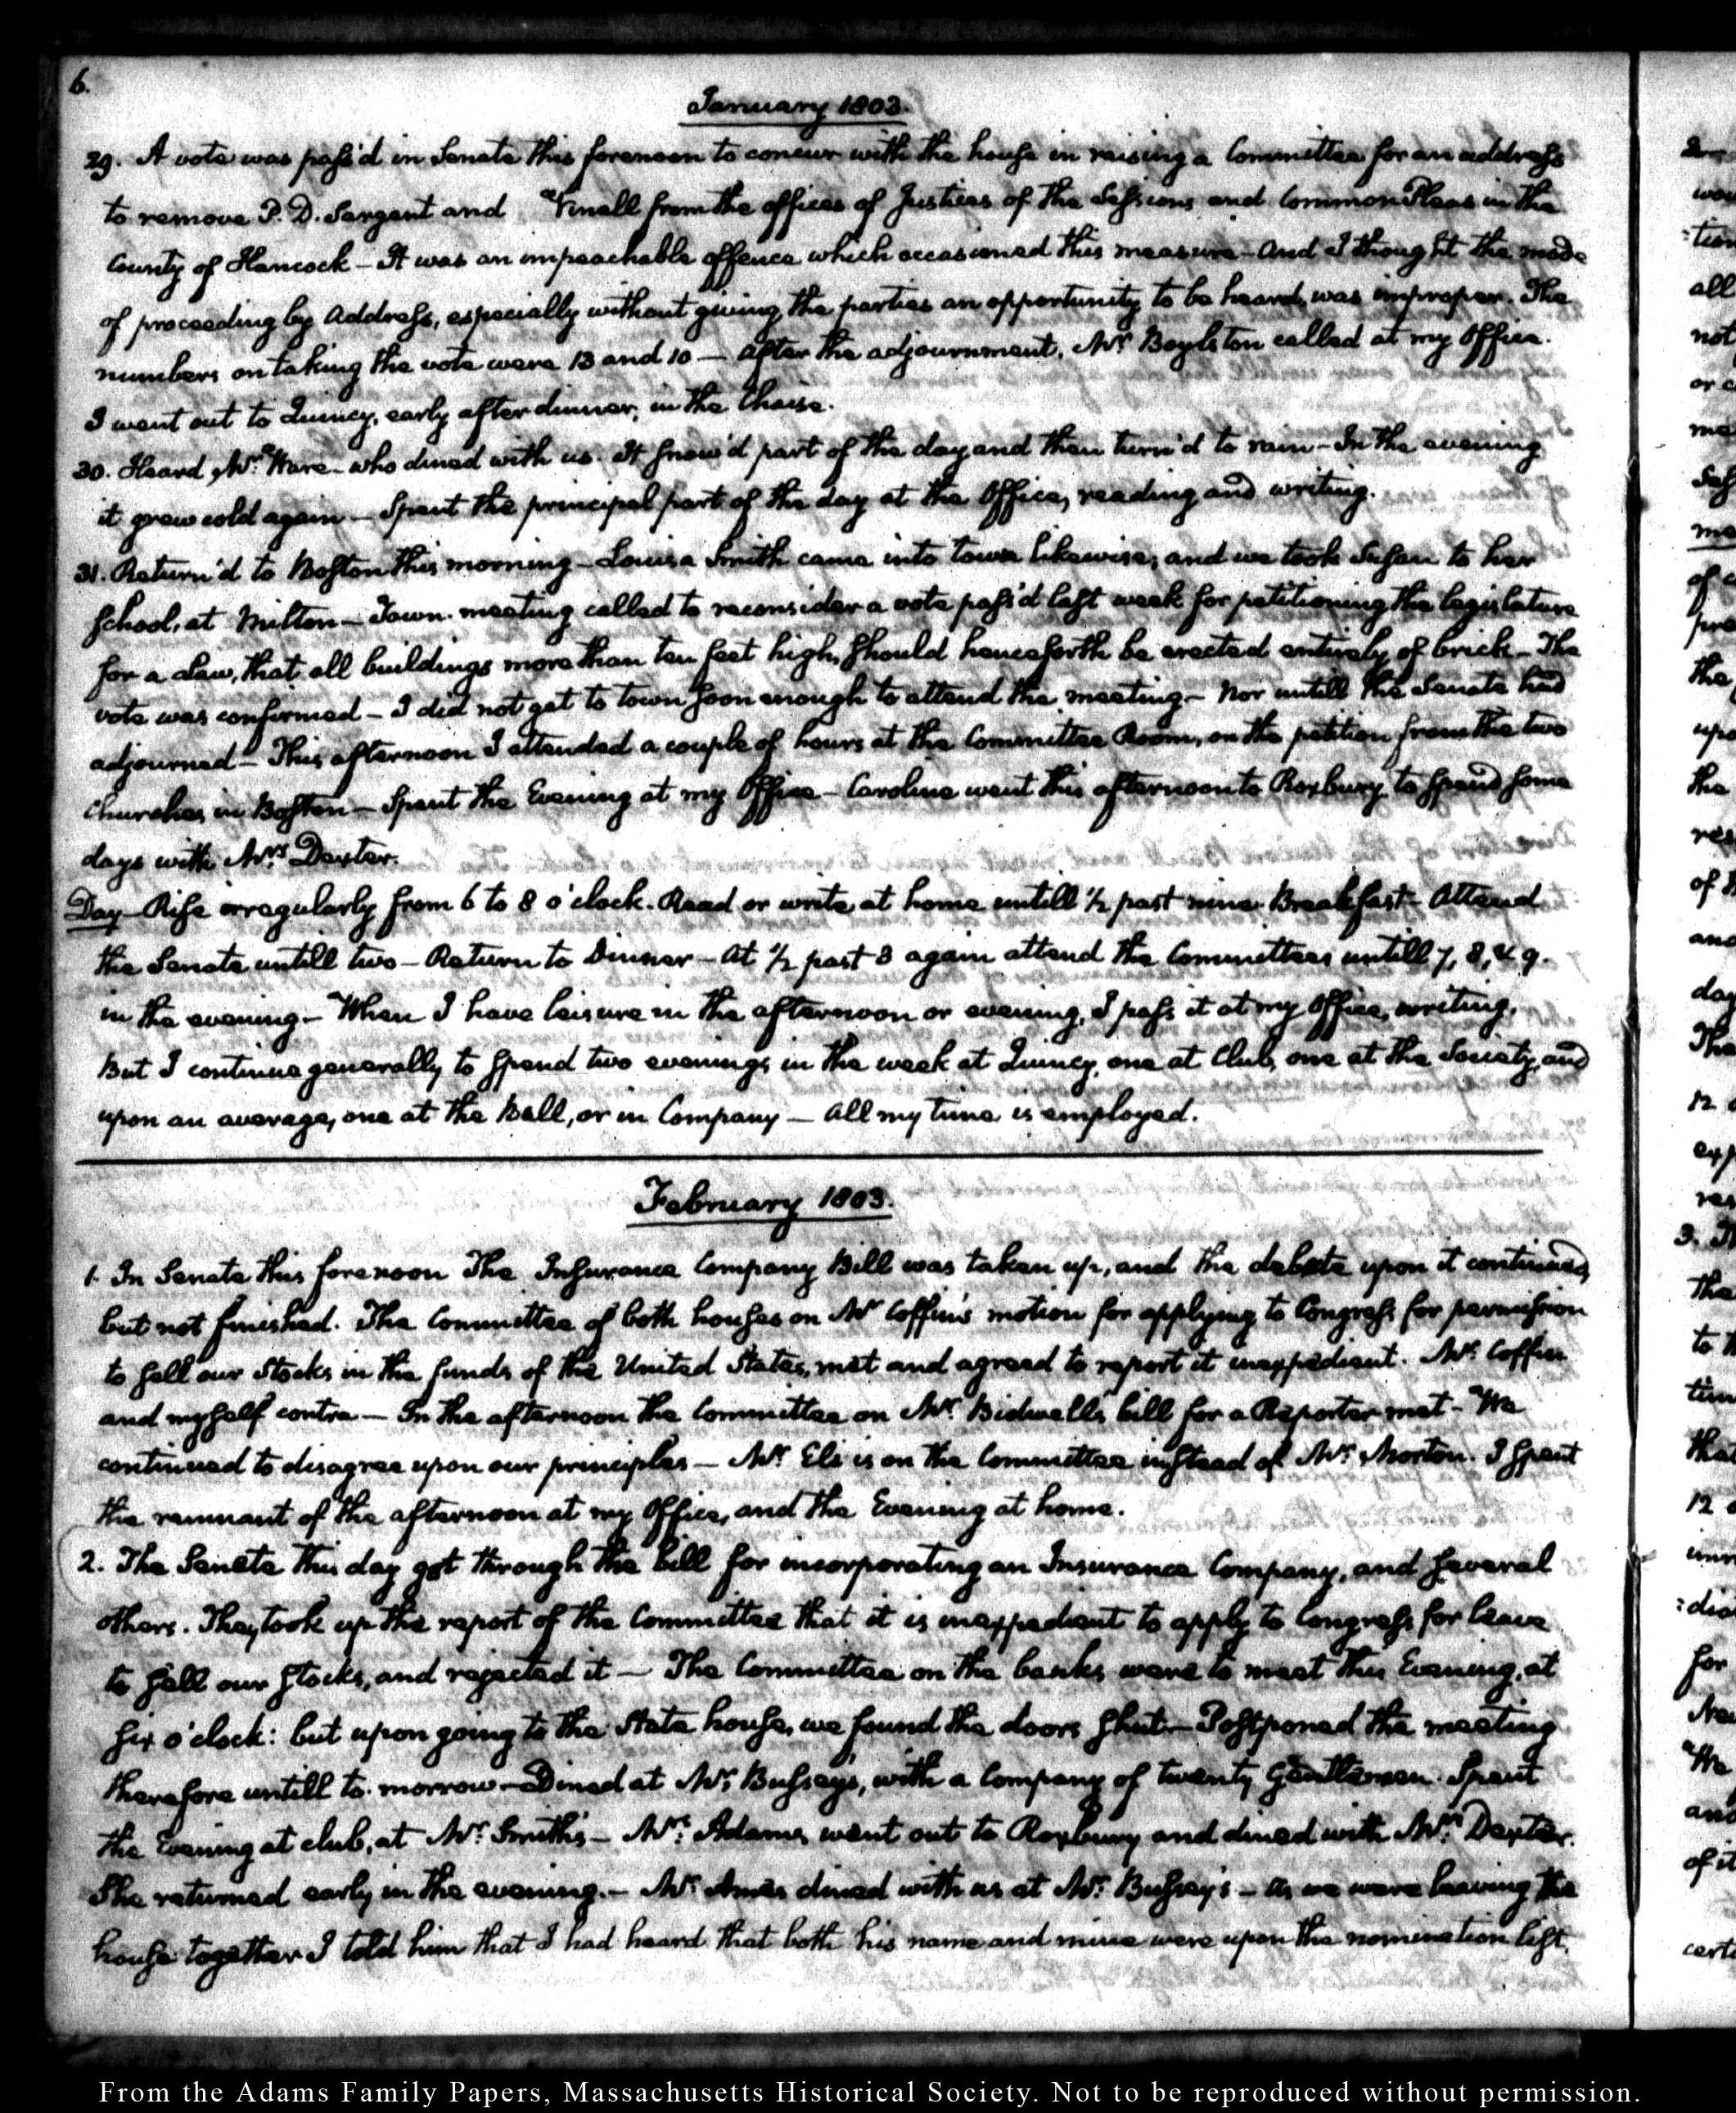 6.
January 1803.
29. A vote was pass'd in Senate this forenoon to concur with the house in raising a Committee for an address
to remove P. D. Sargent and Vinall from the offices of Justices of the Sessions and Common Pleas in the
County of Hancock — It was an impeachable offence which occasioned this measure — And I thought the mode
of proceeding by Address, especially without giving the parties an opportunity to be heard, was improper. The
numbers on taking the vote were 13 and 10 — After the adjournment, Mr. Boylston called at my Office.
I went out to Quincy, early after dinner, in the Chaise.
30. Heard Mr. Ware — who dined with us. It snow'd part of the day and then turn'd to rain — In the evening
it grew cold again — Spent the principal part of the day at the Office, reading and writing.
31. Return'd to Boston this morning — Louisa Smith came into town likewise; and we took Susan to her
School, at Milton — Town-meeting called to reconsider a vote pass'd last week for petitioning the legislature
for a Law, that all buildings more than ten feet high, should henceforth be erected entirely of brick — The
vote was confirmed — I did not get to town soon enough to attend the meeting — Nor untill the Senate had
adjourned — This afternoon I attended a couple of hours at the Committee Room, on the petition from the two
Churches in Boston — Spent the Evening at my Office — Caroline went this afternoon to Roxbury, to spend some
days with Mrs. Dexter.
Day — Rise irregularly from 6 to 8 o'clock. Read or write at home untill ½ past nine. Breakfast — Attend
the Senate untill two — Return to Dinner — At ½ past 3 again attend the Committees untill 7, 8, & 9.
in the evening — When I have leisure in the afternoon or evening, I pass it at my Office, writing.
But I continue generally to spend two evenings in the week at Quincy, one at Club, one at the Society, and
upon an average, one at the Ball, or in Company — All my time is employed.
February 1803.
1. In Senate this forenoon The Insurance Company Bill was taken up, and the debate upon it continued,
but not finished. The Committee of both houses on Mr Coffin's motion for applying to Congress for permission
to sell our Stocks in the funds of the United States, met and agreed to report it inexpedient. Mr. Coffin
and myself contra — In the afternoon the Committee on Mr. Bidwell's bill for a Reporter met — We
continued to disagree upon our principles — Mr. Eli is on the Committee instead of Mr. Morton. I spent
the remnant of the afternoon at my Office, and the Evening at home.
2. The Senate this day got through the bill for incorporating an Insurance Company, and several
others. They took up the report of the Committee that it is inexpedient to apply to Congress for leave
to sell our stocks, and rejected it — The Committee on the banks were to meet this Evening, at
six o'clock: but upon going to the State house, we found the doors shut — Postponed the meeting
therefore untill to-morrow — Dined at Mr. Bussey's, with a Company of twenty Gentlemen. Spent
the Evening at club, at Mr. Smith's — Mrs. Adams went out to Roxbury and dined with Mrs. Dexter.
She returned early in the evening. — Mr. Ames dined with us at Mr. Bussey's — As we were leaving the
house together I told him that I had heard that both his name and mine were upon the nomination list,
From the Adams Family Papers, Massachusetts Historical Society. Not to be reproduced without permission.